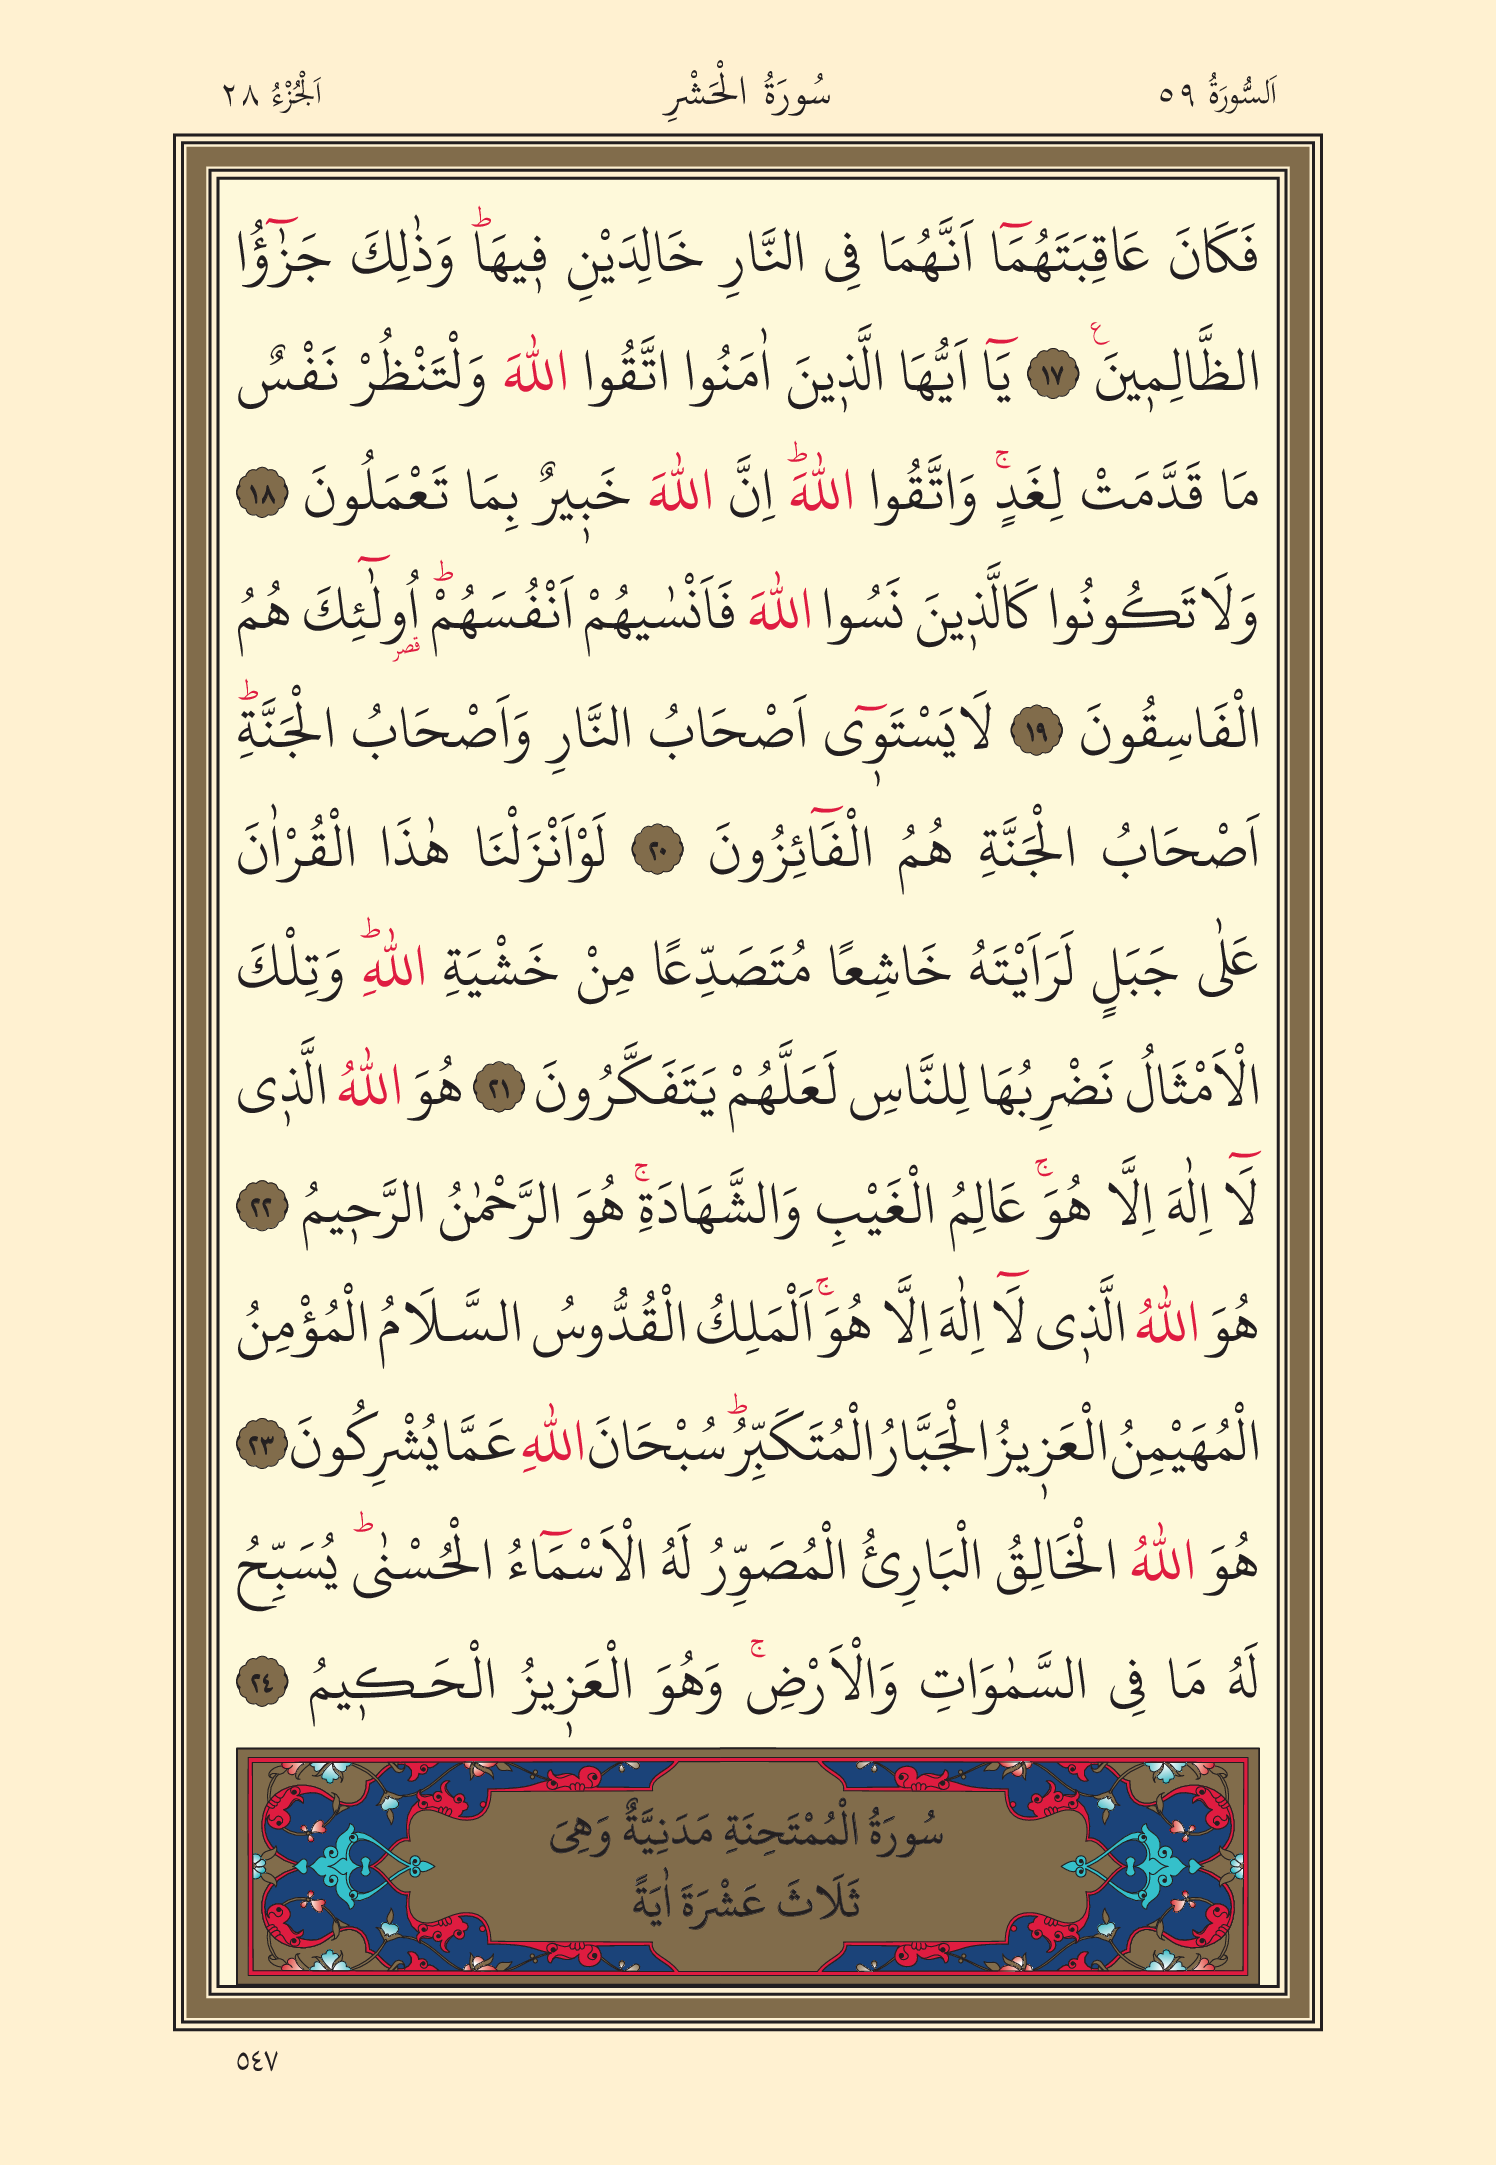 اَلسُّورَةُ ٥٩ سُورَةُ الْحَشْرِ اَلْجُزْءُ ٢٨
فَكَانَ عَاقِبَتَهُمَٓا اَنَّهُمَا فِى النَّارِ خَالِدَيْنِ ف۪يهَاۜ وَذٰلِكَ جَزٰٓؤُا
الظَّالِم۪ينَ ࣖ ﴿١٧﴾ يَٓا اَيُّهَا الَّذ۪ينَ اٰمَنُوا اتَّقُوا اللّٰهَ وَلْتَنْظُرْ نَفْسٌ
مَا قَدَّمَتْ لِغَدٍۚ وَاتَّقُوا اللّٰهَۜ اِنَّ اللّٰهَ خَب۪يرٌ بِمَا تَعْمَلُونَ ﴿١٨﴾
وَلَا تَكُونُوا كَالَّذ۪ينَ نَسُوا اللّٰهَ فَاَنْسٰيهُمْ اَنْفُسَهُمْۜ اُو۬لٰٓئِكَ هُمُ
قصر
الْفَاسِقُونَ ﴿١٩﴾ لَا يَسْتَو۪ٓى اَصْحَابُ النَّارِ وَاَصْحَابُ الْجَنَّةِۜ
اَصْحَابُ الْجَنَّةِ هُمُ الْفَٓائِزُونَ ﴿٢٠﴾ لَوْ اَنْزَلْنَا هٰذَا الْقُرْاٰنَ
عَلٰى جَبَلٍ لَرَاَيْتَهُ خَاشِعًا مُتَصَدِّعًا مِنْ خَشْيَةِ اللّٰهِۜ وَتِلْكَ
الْاَمْثَالُ نَضْرِبُهَا لِلنَّاسِ لَعَلَّهُمْ يَتَفَكَّرُونَ ﴿٢١﴾ هُوَ اللّٰهُ الَّذ۪ى
لَٓا اِلٰهَ اِلَّا هُوَۚ عَالِمُ الْغَيْبِ وَالشَّهَادَةِۚ هُوَ الرَّحْمٰنُ الرَّح۪يمُ ﴿٢٢﴾
هُوَ اللّٰهُ الَّذ۪ى لَٓا اِلٰهَ اِلَّا هُوَۚ اَلْمَلِكُ الْقُدُّوسُ السَّلَامُ الْمُؤْمِنُ
الْمُهَيْمِنُ الْعَز۪يزُ الْجَبَّارُ الْمُتَكَبِّرُۜ سُبْحَانَ اللّٰهِ عَمَّا يُشْرِكُونَ ﴿٢٣﴾
هُوَ اللّٰهُ الْخَالِقُ الْبَارِئُ الْمُصَوِّرُ لَهُ الْاَسْمَٓاءُ الْحُسْنٰىۜ يُسَبِّحُ
لَهُ مَا فِى السَّمٰوَاتِ وَالْاَرْضِۚ وَهُوَ الْعَز۪يزُ الْحَك۪يمُ ﴿٢٤﴾
سُورَةُ الْمُمْتَحِنَةِ مَدَنِيَّةٌ وَهِىَ
ثَلَاثَ عَشْرَةَ اٰيَةً
٥٤٧